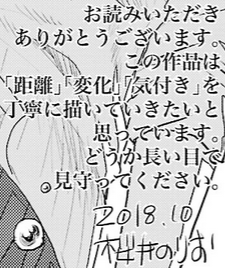 お読みいただき
ありがとうございます。
この作品は
「距離」「変化」「気付き」を
丁寧に描いていきたいと
思っています。
どうか長い目で
見守ってください。
2018.10
桜井のりお